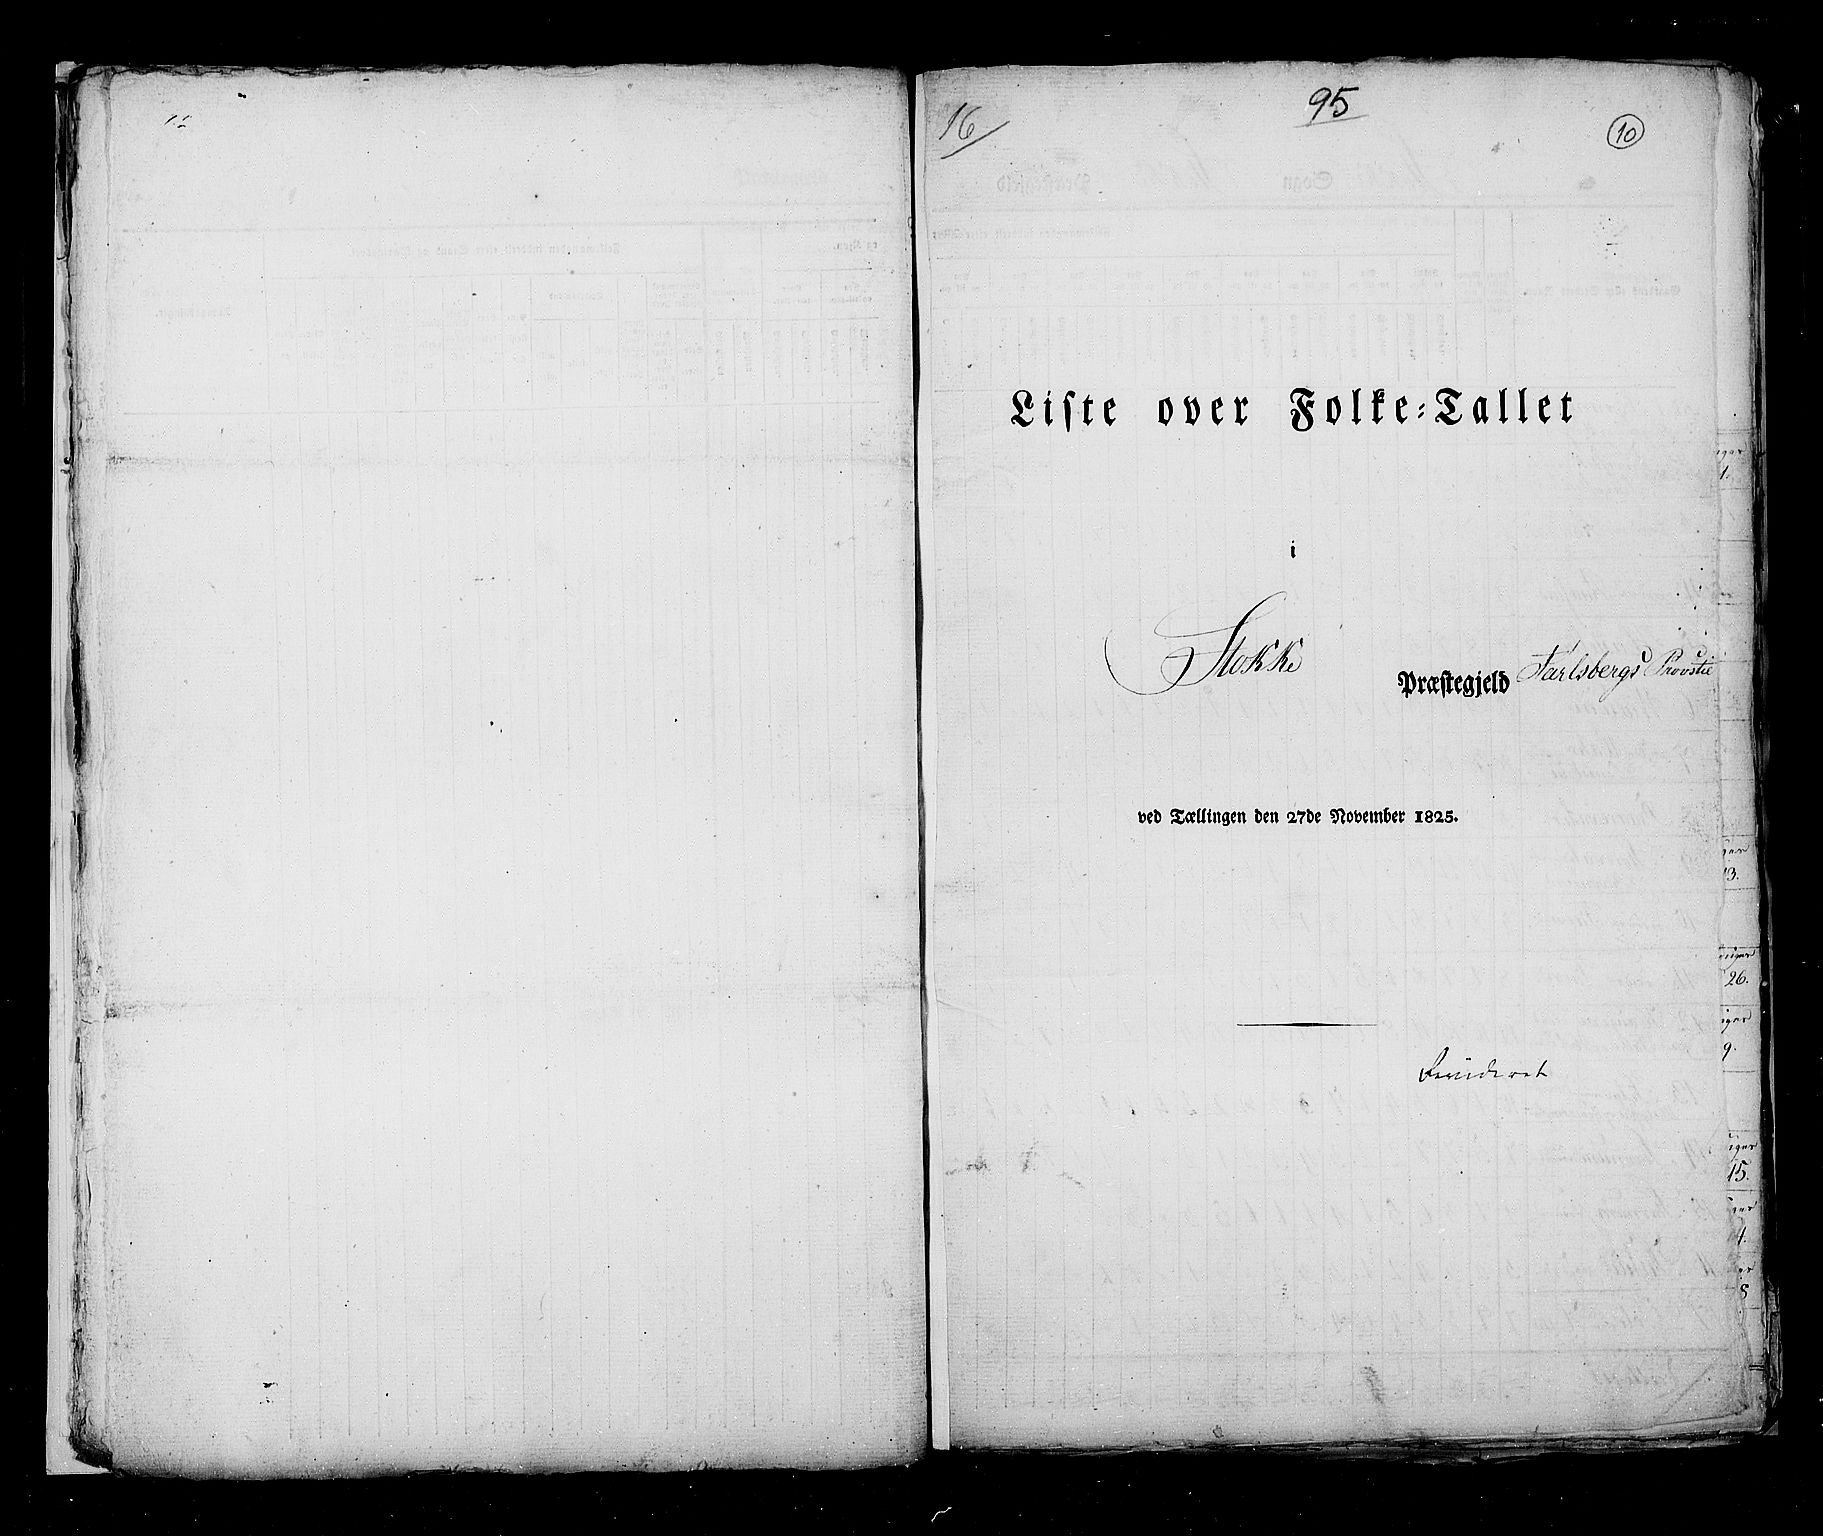 16
95
10
Liste over Folke-Tallet
i
Stokke Præstegjeld Jarlsbergs Provstie
ved Tællingen den 27de November 1825.
Revideret
13.
26.
9.
15.
4.
8